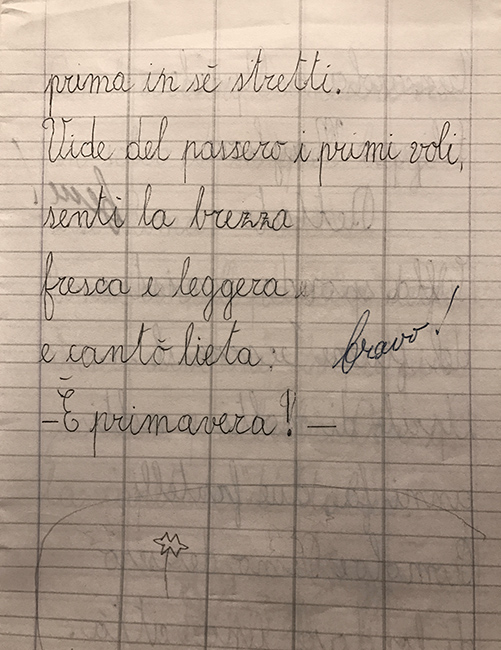 prima in sě stretti.
Vide del passero i primi voli,
senti la brezza
fresca e leggera
e cantŏ lieta:
bravo!
-Ĕ primavera! -